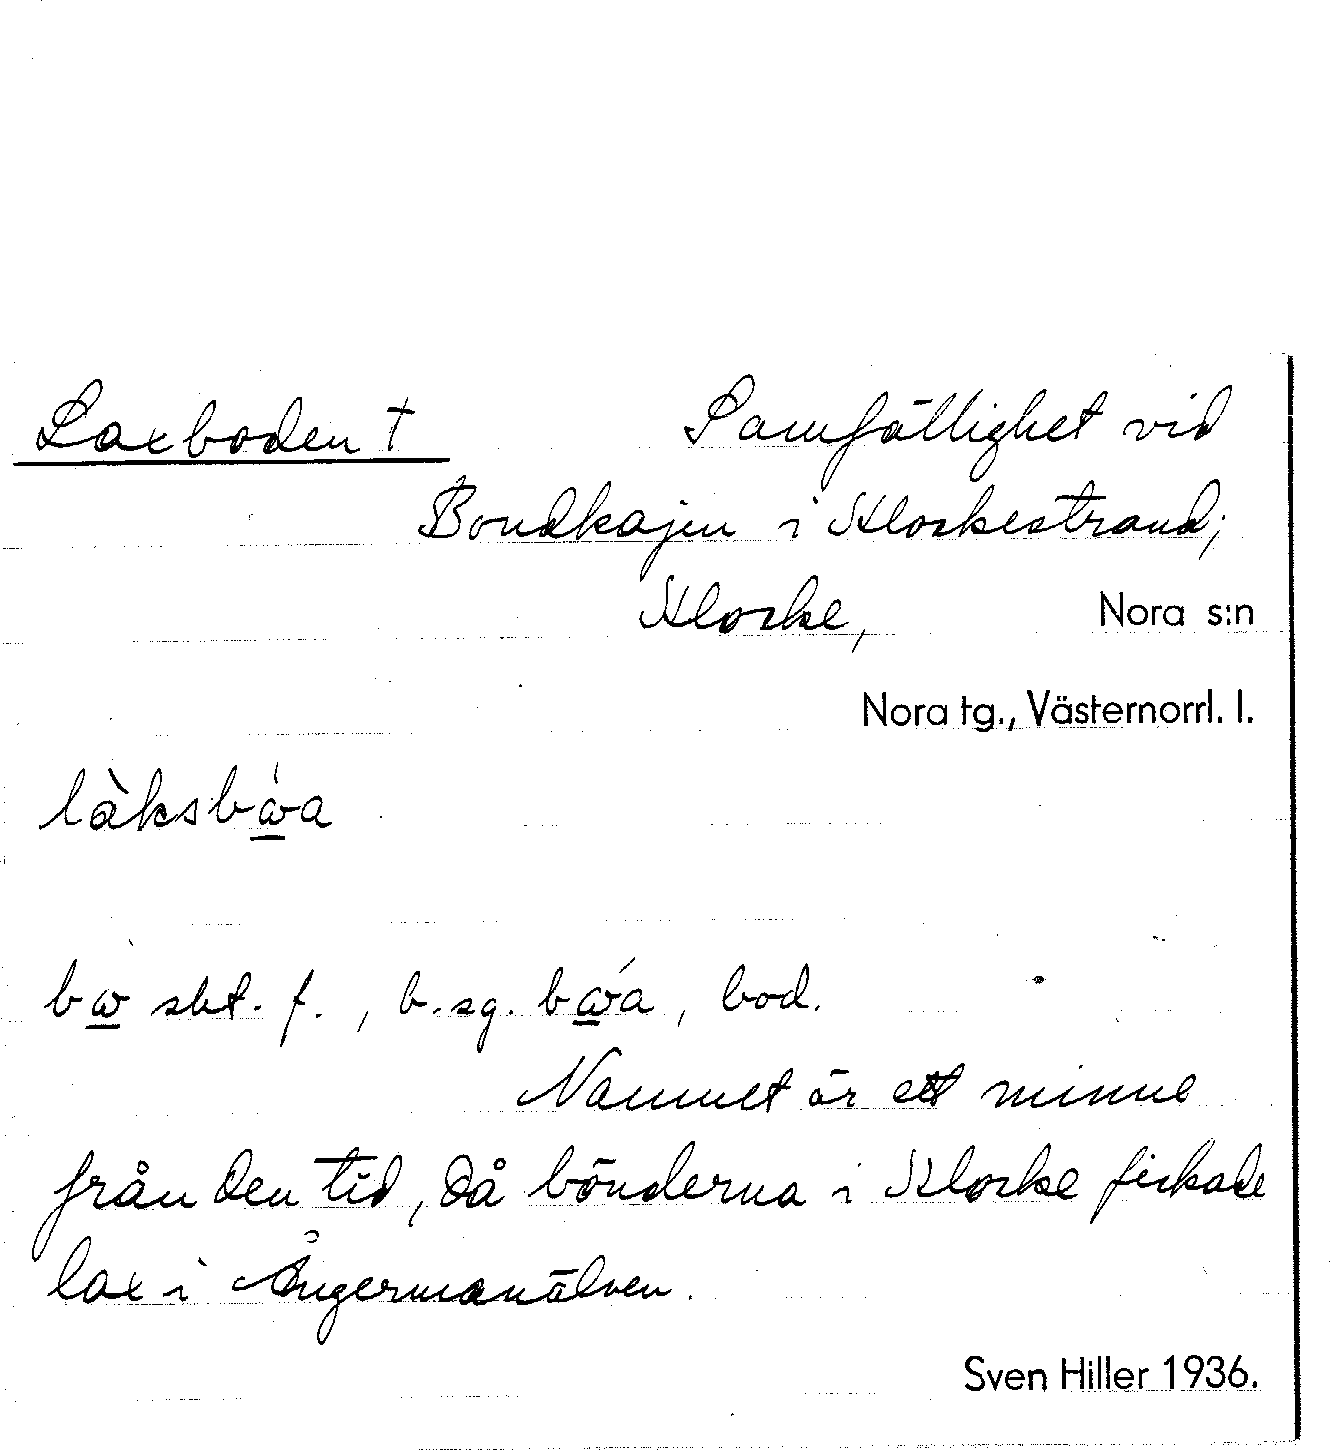 Laxboden † Samfällighet vid
Bondkajen i Klockestrand;
Klocke, Nora s:n
Nora tg., Västernorrl. l.
làksbώ̲a
bω̲ sbt. f., b. sg. bώ̲a, bod.
Namnet är ett minne
från den tid, då bönderna i Klocke fiskade
lax i Ångermanälven.
Sven Hiller 1936.